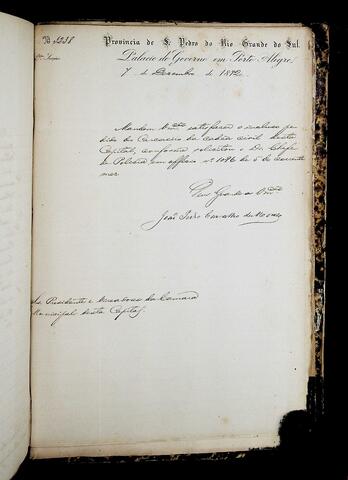 Provincia de S. Pedro do Rio Grande do Sul.
Palacio do Governo em Porto Alegre,
7 de Dezembro de 1872
Mandem Vmcês satisfazer o incluso pe-
dido do Carcereiro da Cadeia civil desta
Capital, conforme solicitou o Dr. Chefe
de Policia em officio nº 1046 de 5 do corrente
mez.
Deus Guarde a Vmcês
João Pedro Carvalho de Moraes
Srs. Presidente e Vereadores da Camara
Municipal desta Capital.